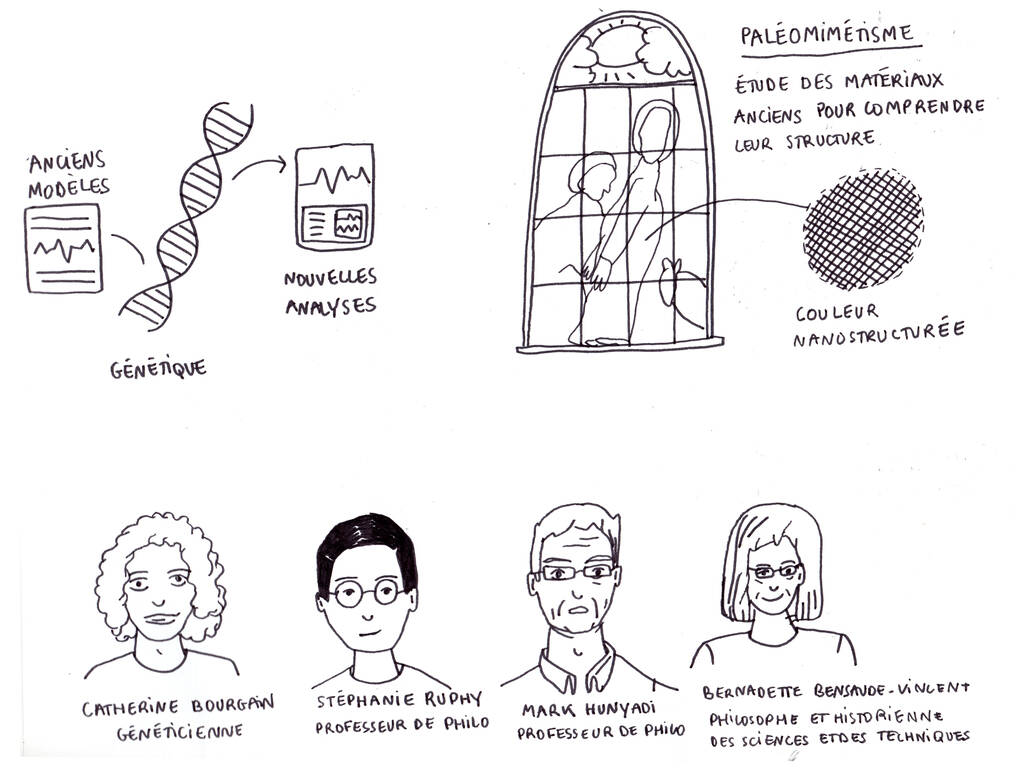 ANCIENS
MODÈLES
GÉNÉTIQUE
NOUVELLES
ANALYSES
PALÉOMIMÉTISME
ÉTUDE DES MATÉRIAUX
ANCIENS POUR COMPRENDRE
LEUR STRUCTURE
COULEUR
NANOSTRUCTURÉE
CATHERINE BOURGAIN
GÉNÉTICIENNE
STÉPHANIE RUPHY
PROFESSEUR DE PHILO
MARK HUNYADI
PROFESSEUR DE PHILO
BERNADETTE BENSAUDE-VINCENT
PHILOSOPHE ET HISTORIENNE
DES SCIENCES ET DES TECHNIQUES